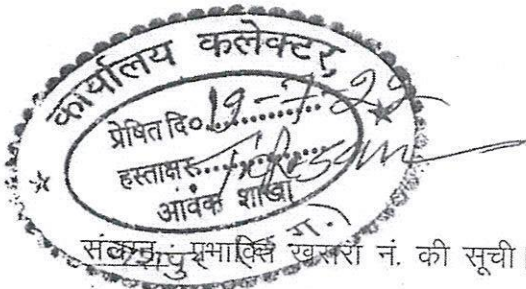 कार्यालय कलेक्टर,
प्रेषित दि० 19-7-22
हस्ताक्षर
आवक शाखा
संलग्न प्रभावित खसरा नं. की सूची